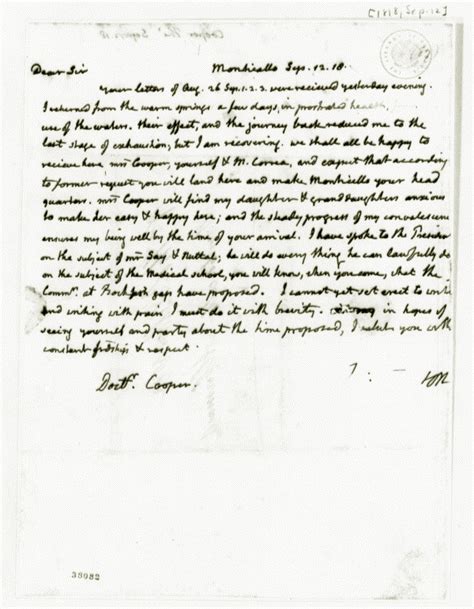 [1818, Sep. 12]
Dear Sir Monticello Sep. 12. 18.
Your letters of Aug. 26 Sep. 1. 2. 2. were recieved yesterday evening.
I returned from the warm springs a few days, in prostrated health,
use of the waters. their effect, and the journey back reduced me to the
last stage of exhaustion, but I am recovering. we shall all be happy to
recieve here mrs Cooper, yourself & M. Correa, and expect that according
to former request you will land here and make Monticello your head
quarters. mrs Cooper will find my daughter & granddaughters anxious
to make her easy & happy here; and the steady progress of my convalescence
ensures my being well by the time of your arrival. I have spoke to the Presiden
on the subject of mr Say & Nuttal; he will do every thing he can lawfully do
on the subject of the Medical school, you will know, when you come, what the
Commrs. at Rockfish gap have proposed. I cannot yet set erect to write
and writing with pain I must do it with brevity. in hopes of
seeing yourself and party about the time proposed, I salute you with
constant frdship & respect.
Doctr. Cooper.
38082